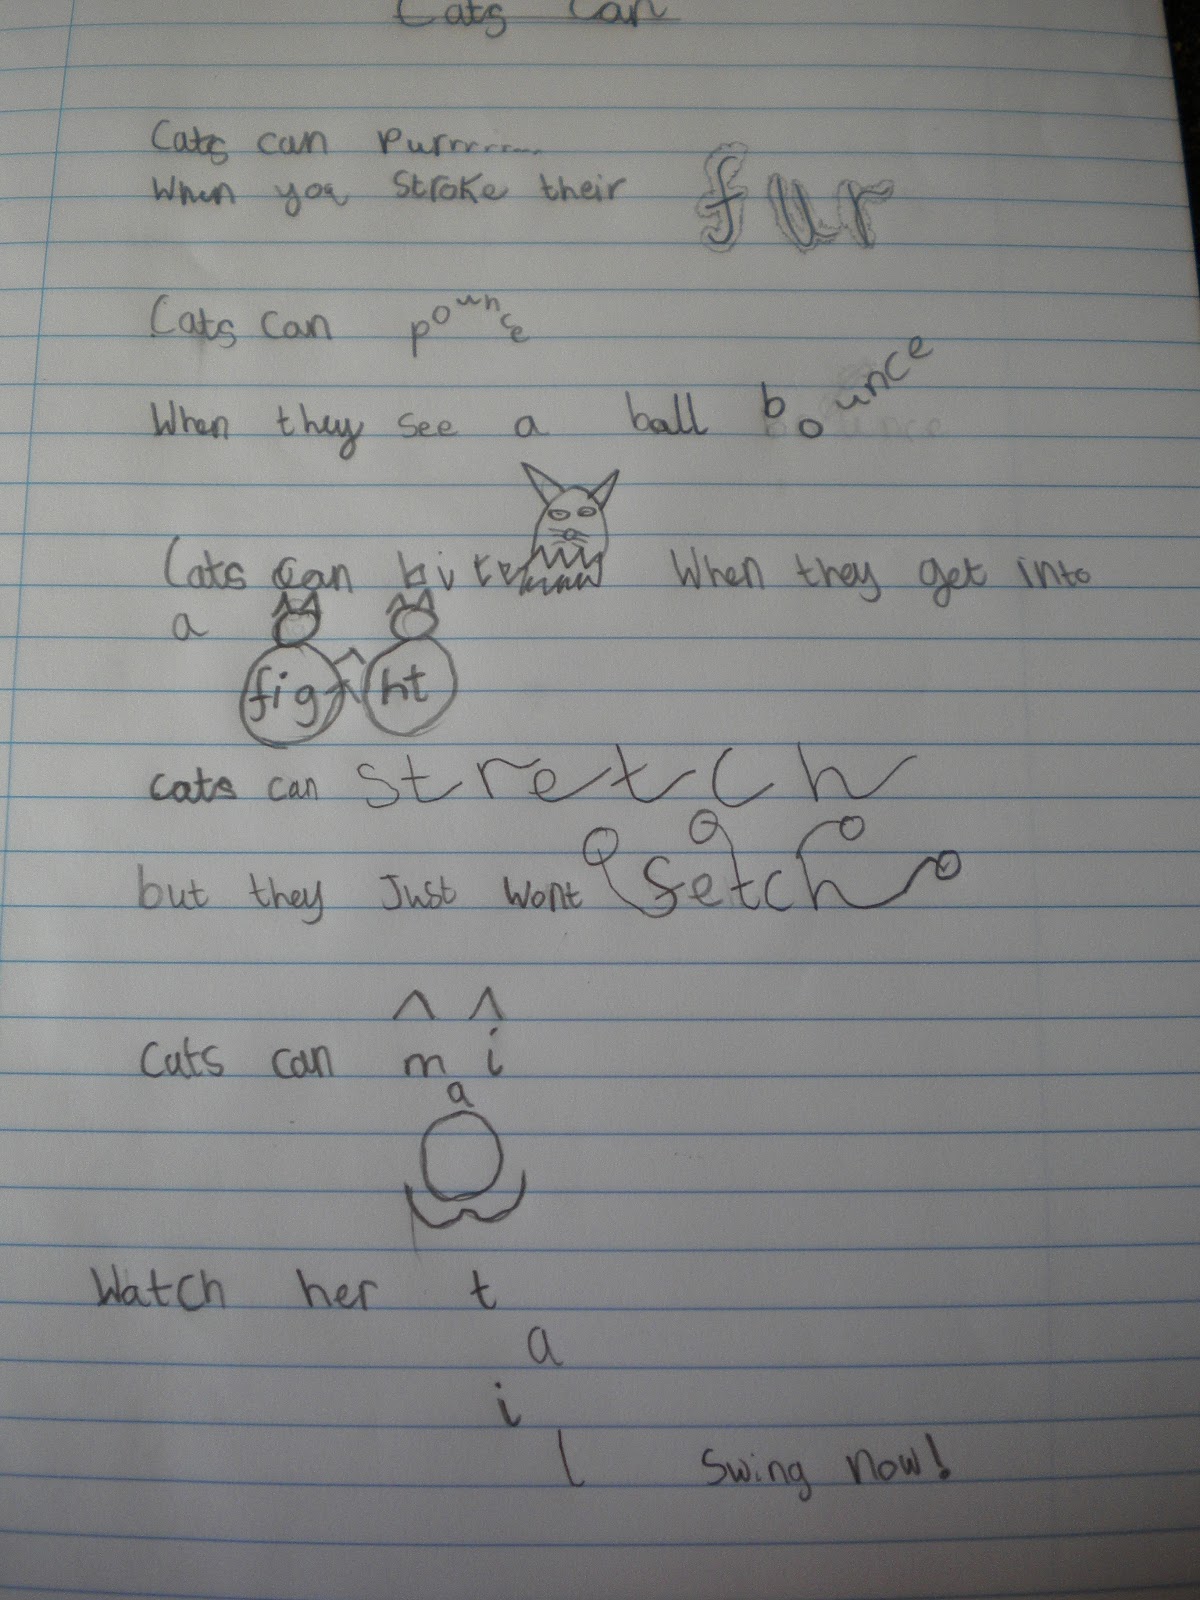 Cats Can
Cats can Purrrrr.....
When you Stroke their fur
Cats Can pounce
When they see a ball bounce
Cats can bite When they get into
a fight
cats can stretch
but they Just wont fetch
Cats can miaow
Watch her tail Swing now!